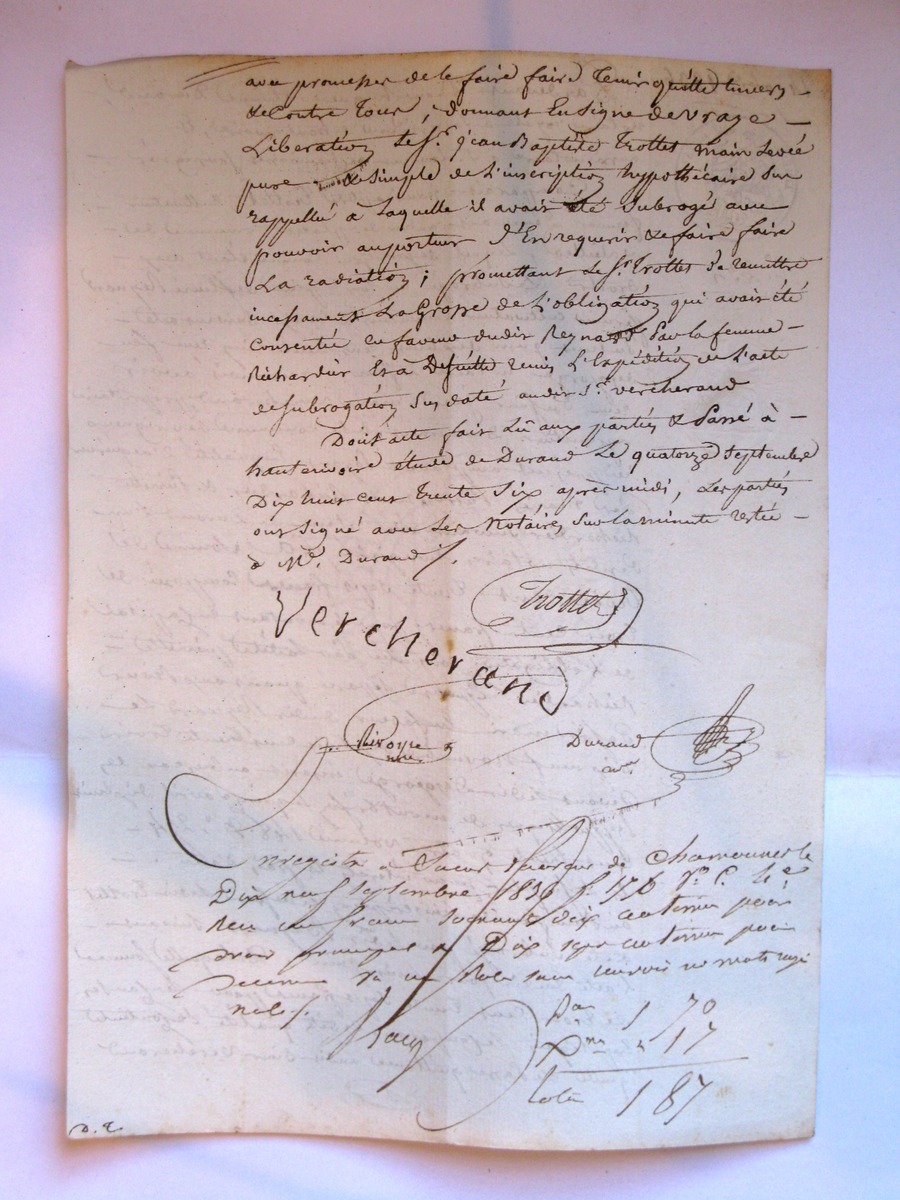 avec promesses de le faire faire tenir quitte envers
& contre tous ; donnant en signe de vraye
Libération le Sr. jean Baptiste Trottet main levée
pure & simple de l'inscription hypothécaire sus
rappellée à laquelle il avait été subrogé avec
pouvoir au porteur d'en requerir & faire faire
La radiation ; promettant le Sr. Trottet de remettre
incessament La Grosse de L'obligation qui avait été
consentie en faveur dudit Reynard par la femme
Richardier Et à de suitte remis L'Expédition de L'acte
de subrogation sus daté audit Sr. Vercherand
Dont acte fait Lû aux parties & Passé à
hauterivoire étude de Durand Le quatorze Septembre
Dix huit cent trente Six après midi, Les parties
ont signé avec Les Notaires Sur la minute restée
à Me. Durand /.
Trottet
Vercherand
Durand
Enregistré à Saint de Chamousset le
Dix neuf septembre 1836 fo. 176
Reçu un franc soixante dix centimes pour
droit principal et Dix sept centimes pour
decime
Pal 1 70
Dme " 17
Total 1 87